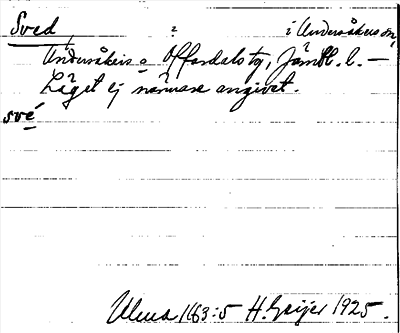 Sved ? i Undersåkers sn,
Undersåkers o Offerdals tg, Jämtl. l. —
Läget ej närmare angivet.
své
Ulma 1163:5 H. Geijer 1925.